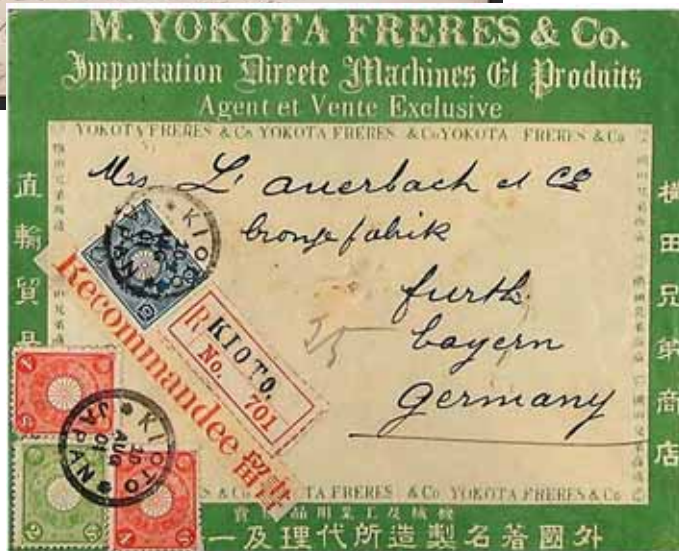 M. YOKOTA FRERES & Co.
Importation Direete Machines Et Produits
Agent et Vente Exclusive
YOKOTA FRERES & Co YOKOTA FRERES & Co YOKOTA FRERES & Co
Mrs L. Auerbach et Co
bronzefabrik
furth
bayern
Germany
KIOTO
AUG 01
JAPAN
Recommandee 留書
R KIOTO.
No. 701
KIOTO
20 AUG 01
JAPAN
直輸貿易
横田兄弟商店
YOKOTA FRERES & Co YOKOTA FRERES & Co
機械及工業用品
外國著名製造所代理及一